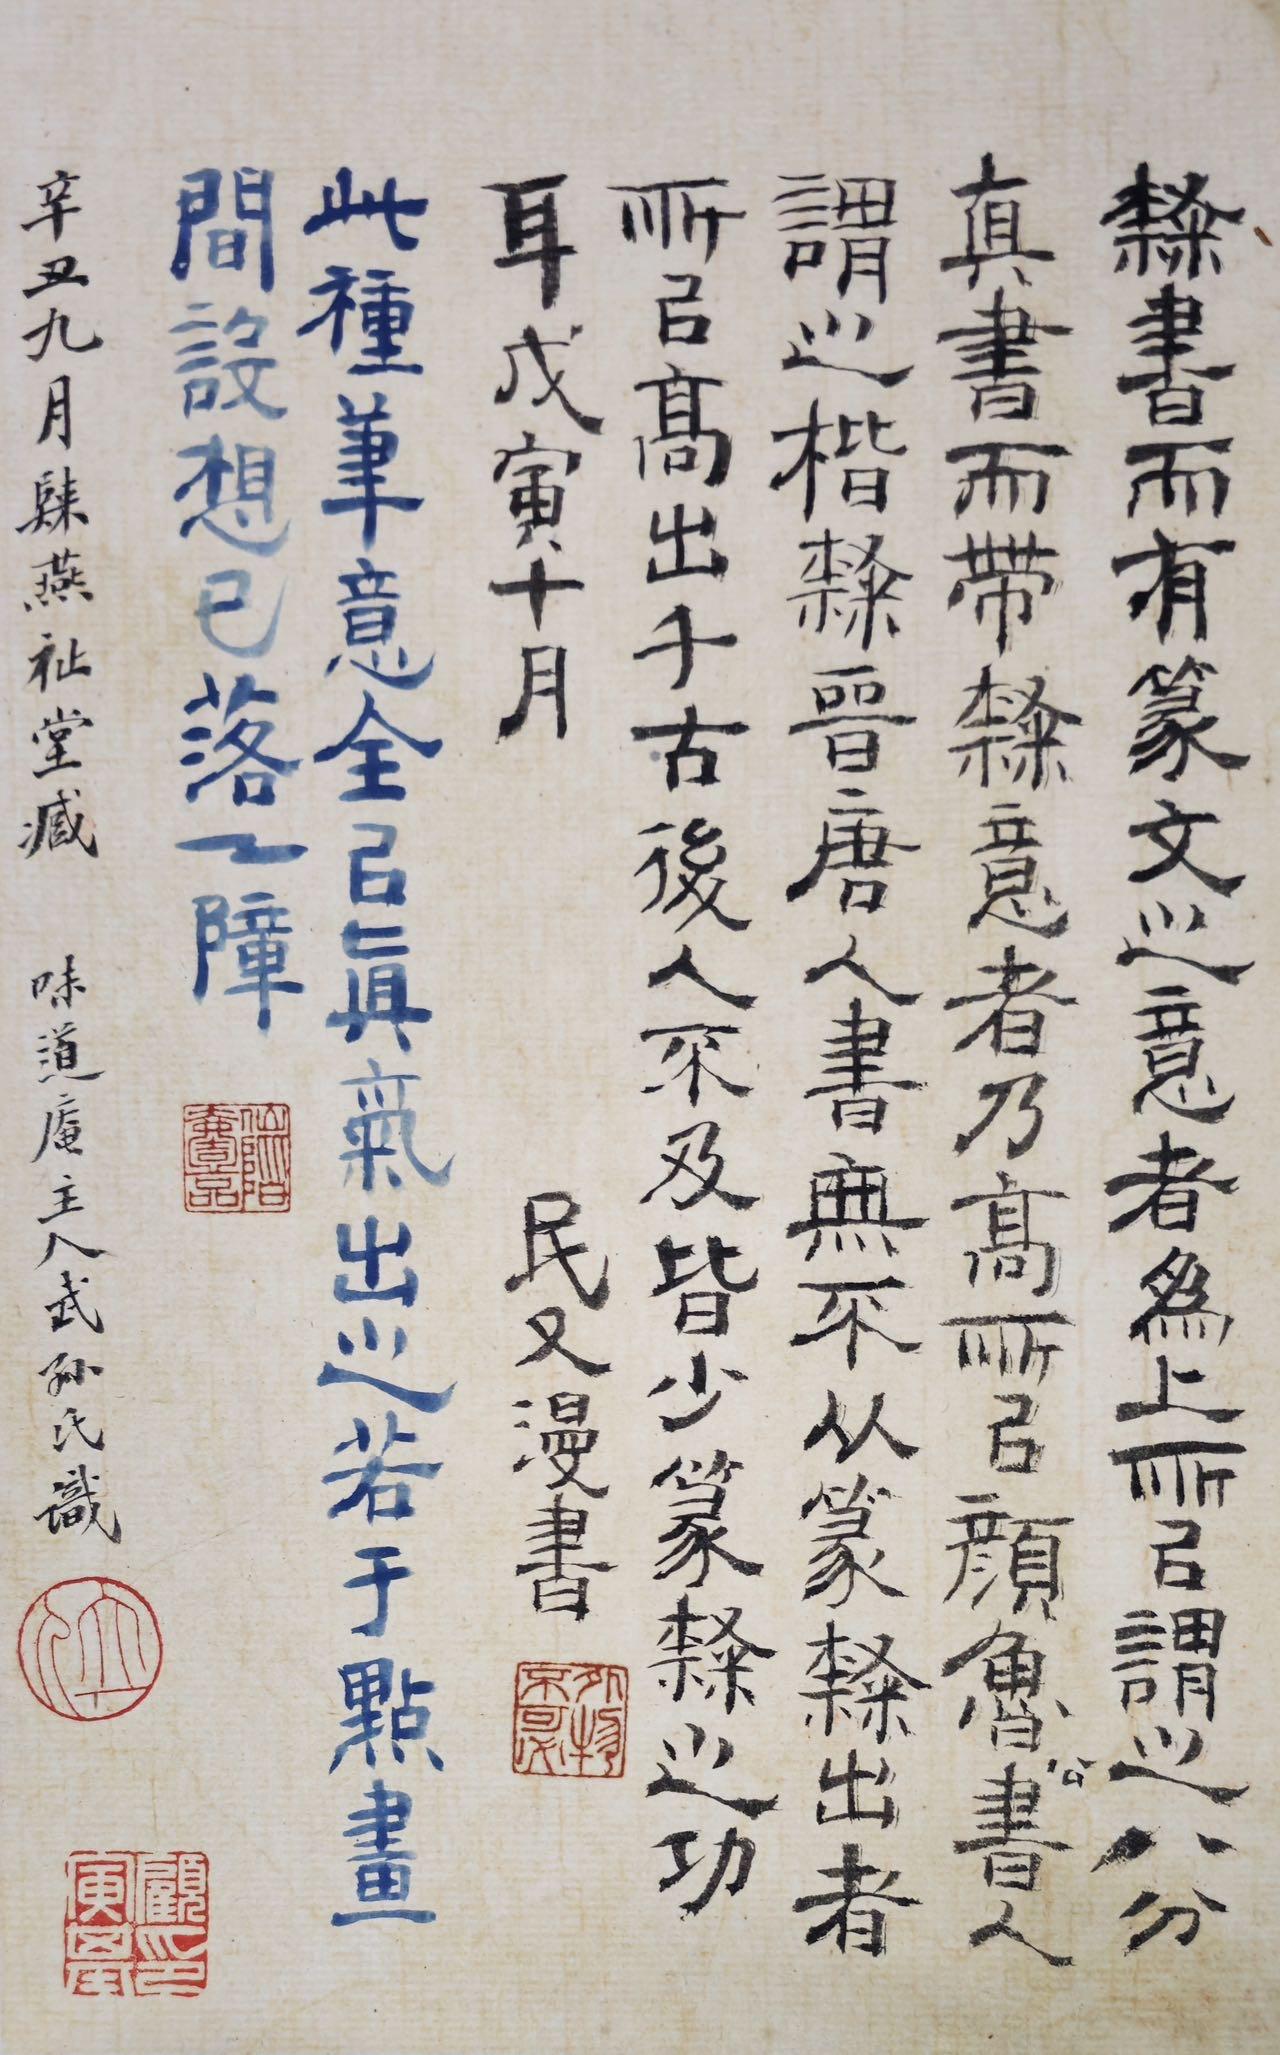 隸書而有篆文之意者為上所㠯謂之八分
真書而帶隸意者乃高所㠯顏魯公書人
謂之楷隸晉唐人書無不从篆隸出者
所㠯高出千古後人不及皆少篆隸之功
耳戊寅十月
民又漫書
此種筆意全㠯眞氣出之若于點畫
間設想已落一障
辛丑九月肄燕祉堂臧
味道庵主人式孫氏識